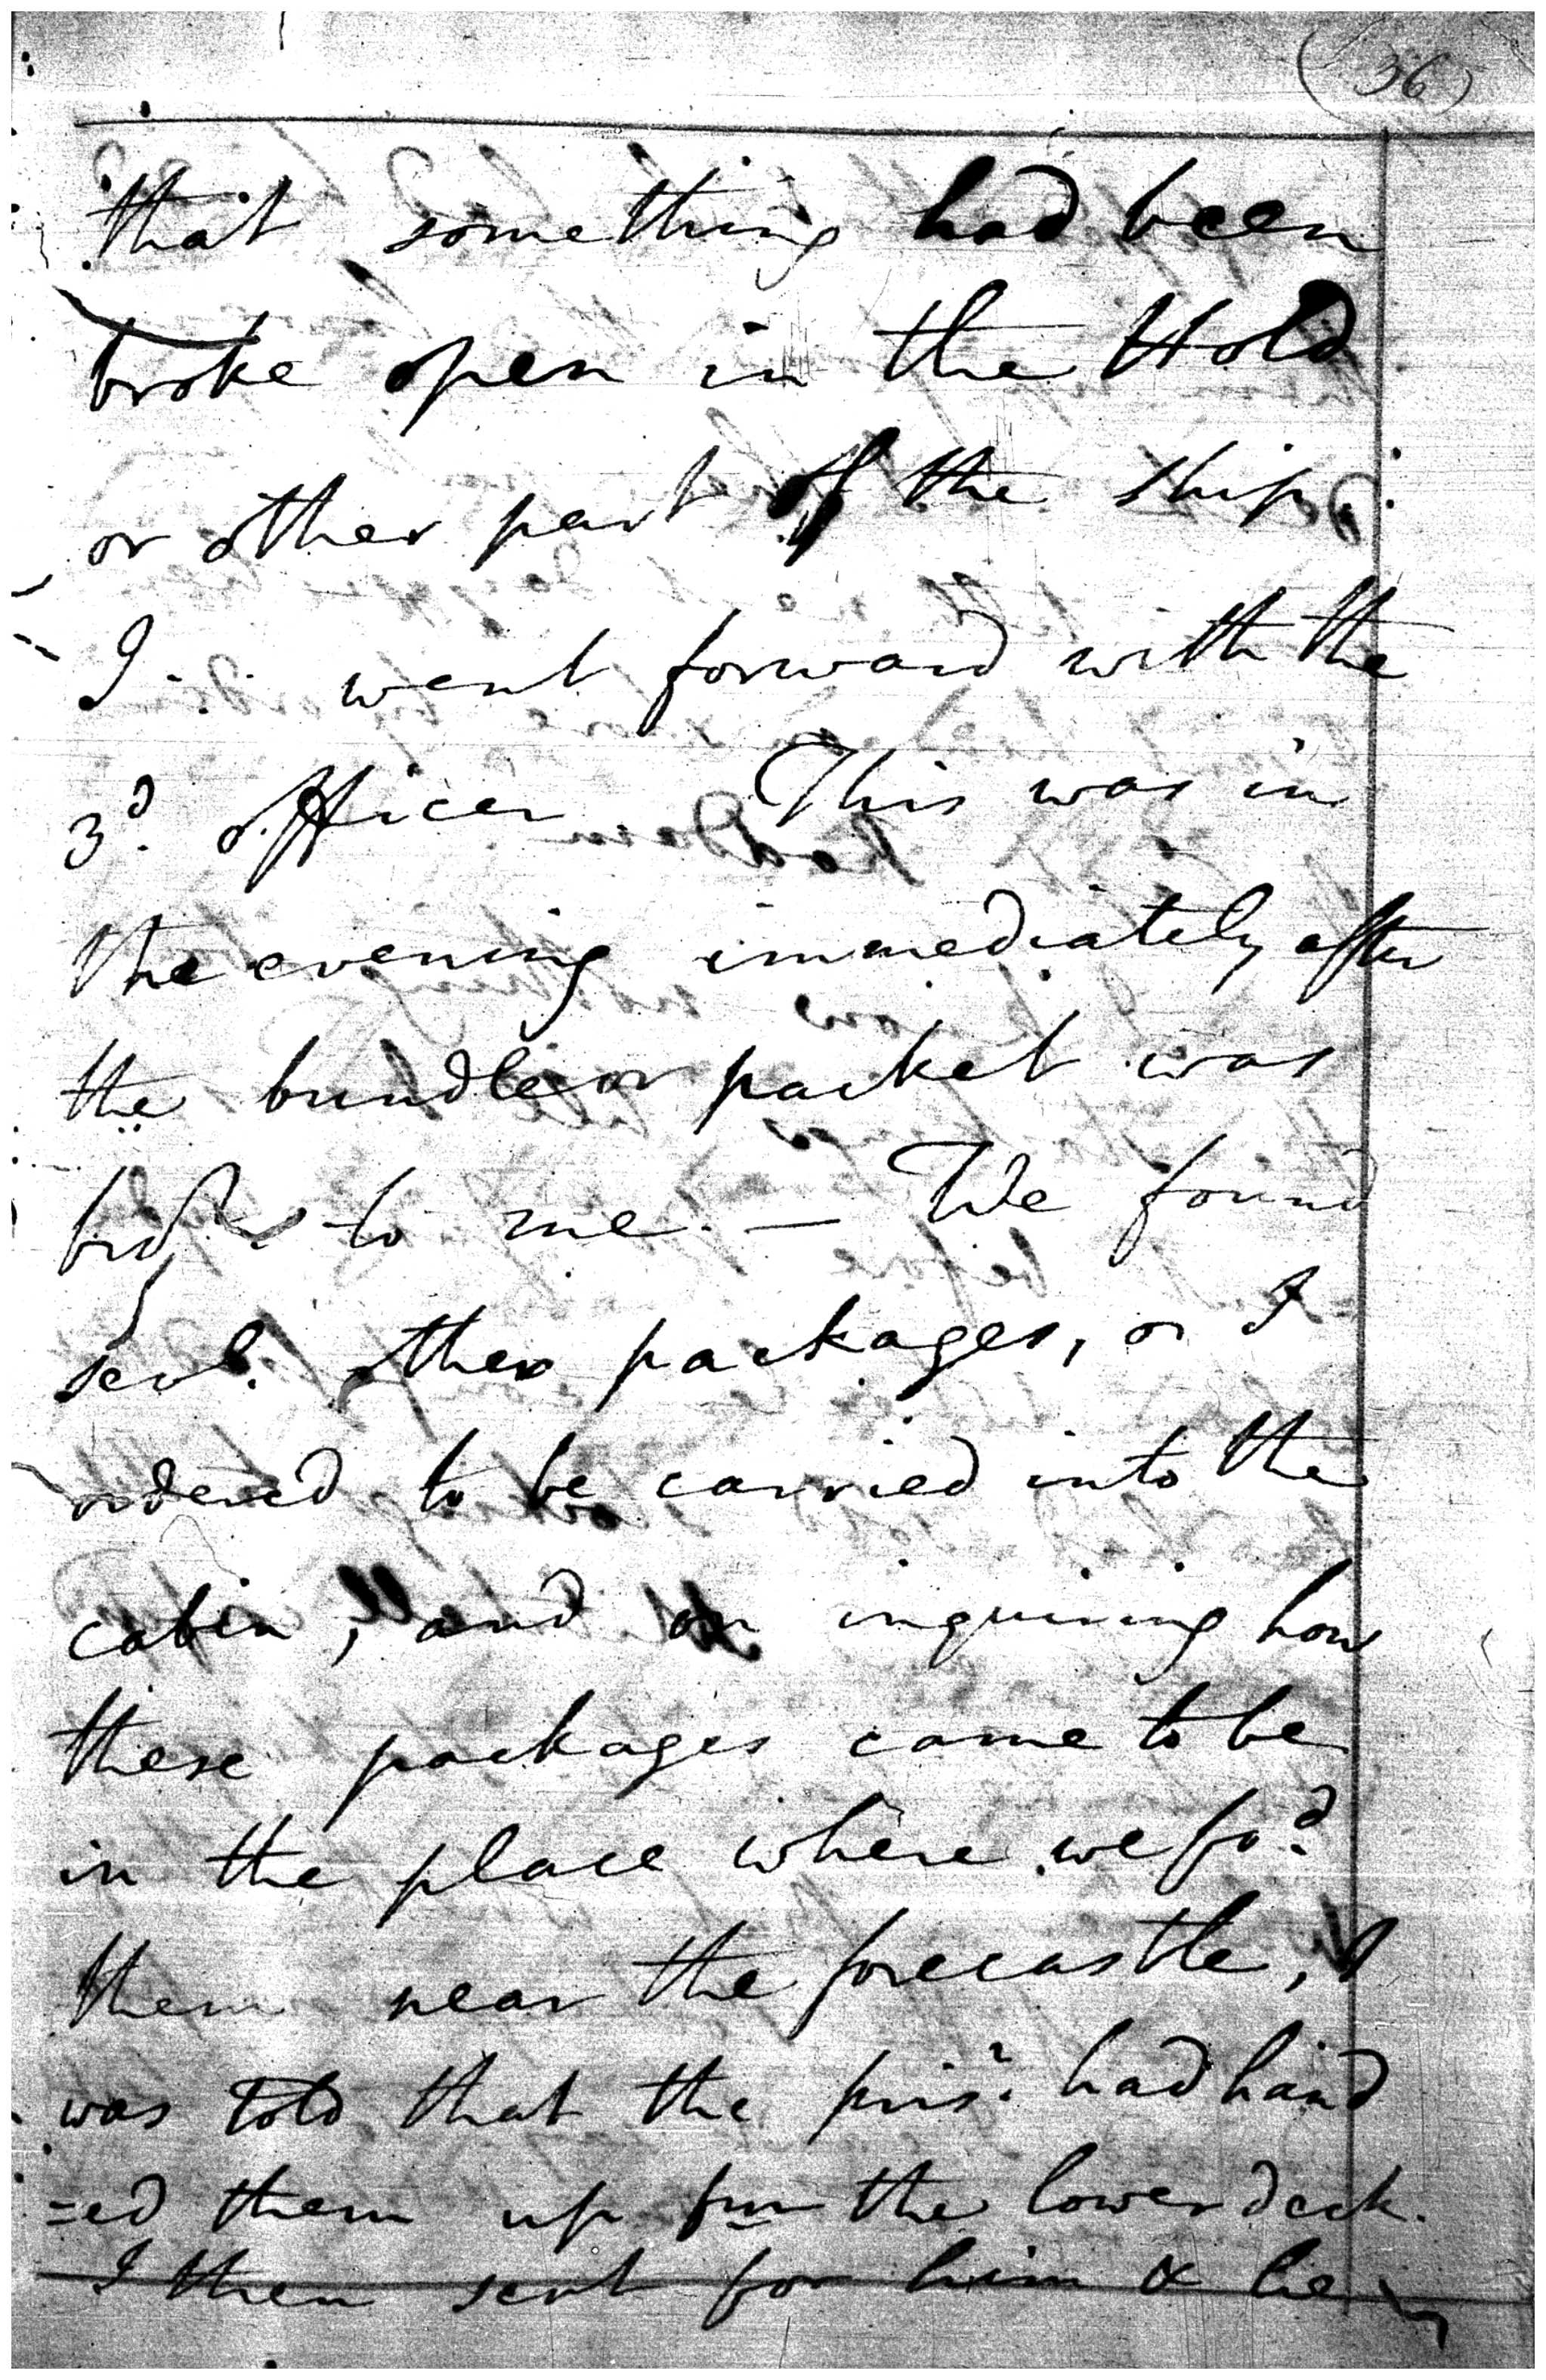 (36)
that something had been
broke open in the Hold
or other part of the ship.
I . . went forward with the
3d. officer This was in
the evening immediately after
the bundle or packet was
to me. — We found
sevl. other packages, or I
ordered to be carried into the
cabin, and on inquiring how
these packages came to be
in the place where we fod.
them near the forecastle, I
was told that the prisr. had hand
=ed them up fm the lower deck.
I then sent for him & he